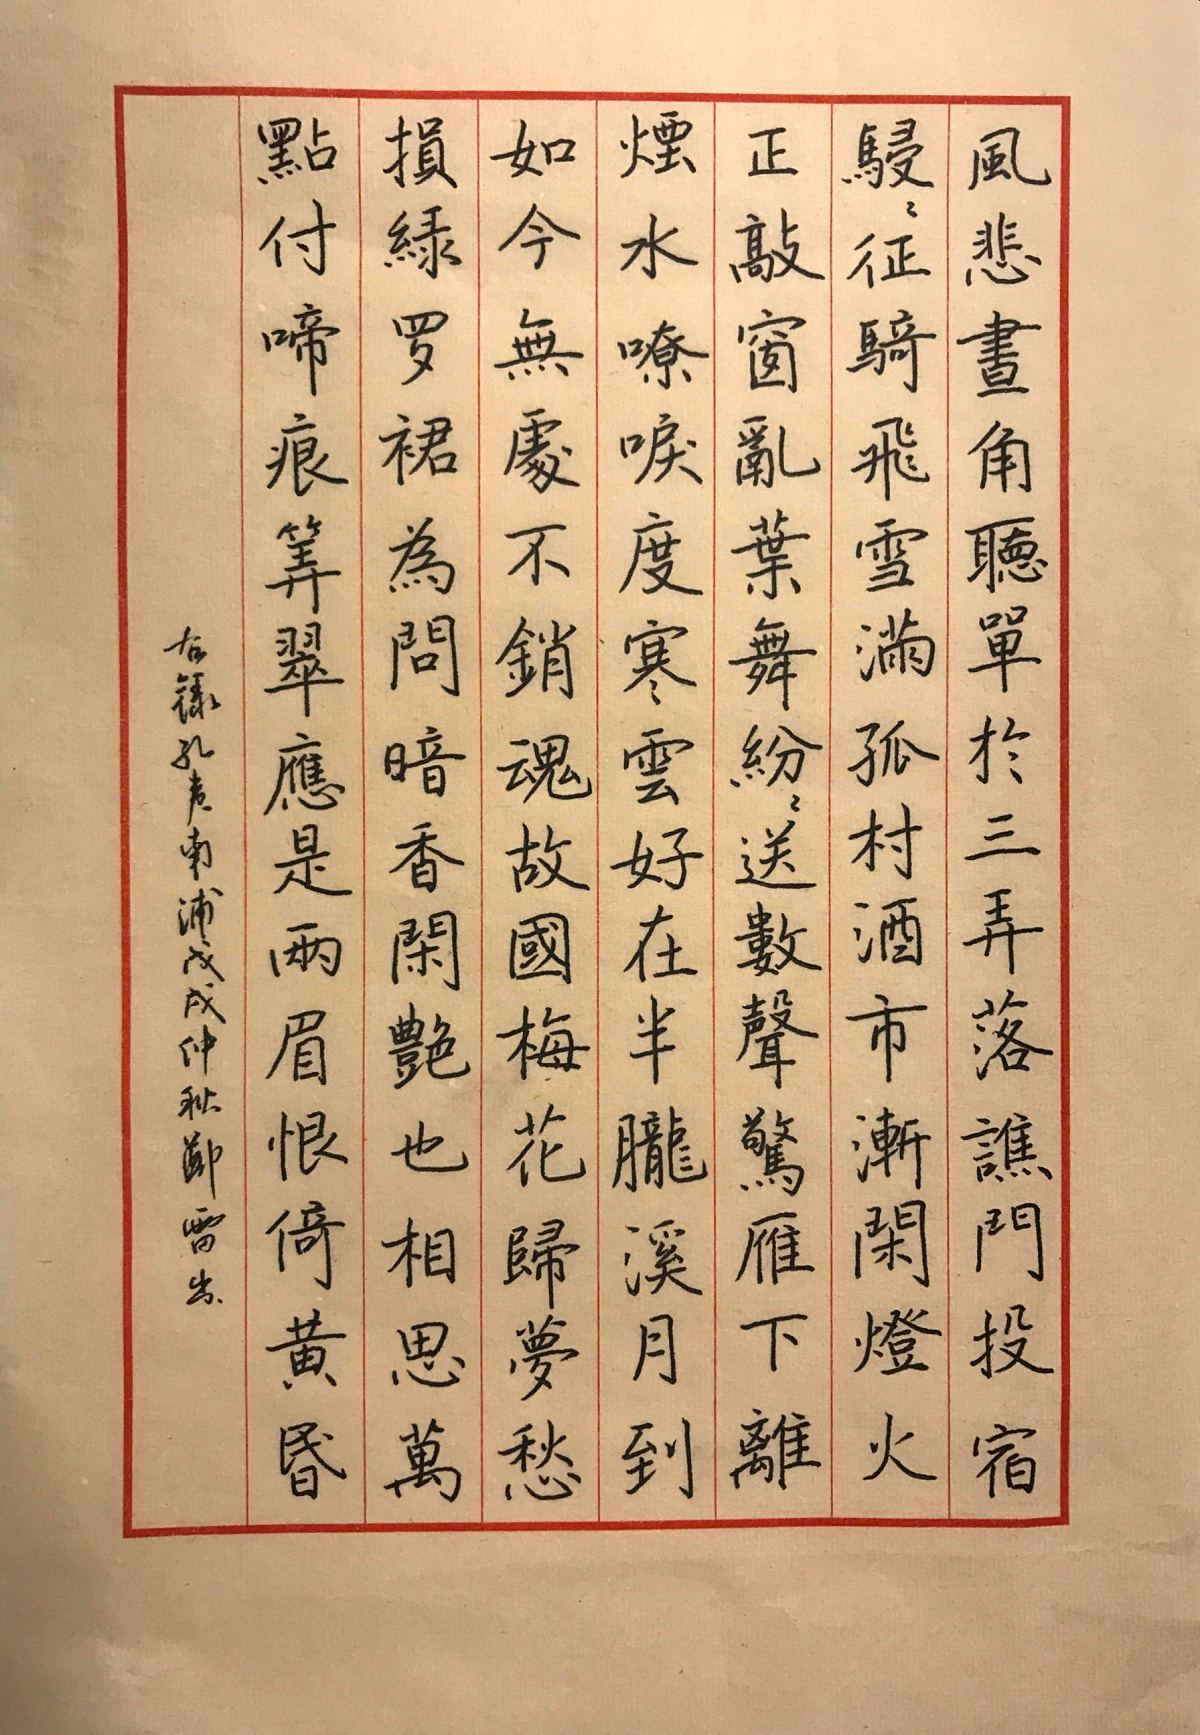 風悲畫角聽單於三弄落譙門投宿
駸〻征騎飛雪滿孤村酒市漸閑燈火
正敲窗亂葉舞紛〻送數聲驚雁下離
煙水嘹唳度寒雲好在半朧溪月到
如今無處不銷魂故國梅花歸夢愁
損綠罗裙為問暗香閑艷也相思萬
點付啼痕筭翠應是兩眉恨倚黃昬
右錄孔夷南浦戊戌仲秋鄭雷书